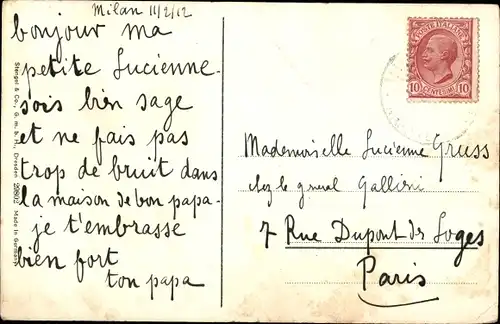 Milan 11/2/12
bonjour ma
petite Lucienne.
sois bien sage
et ne fais pas
trop de bruit dans
la maison de bon papa.
je t'embrasse
bien fort
ton papa
Stengel & Co., G. m. b. H., Dresden Made in Germany
POSTE ITALIANE
10 CENTESIMI 10
Mademoiselle Lucienne Gruss
chez le general Gallieni
7 Rue Dupont des Loges
Paris